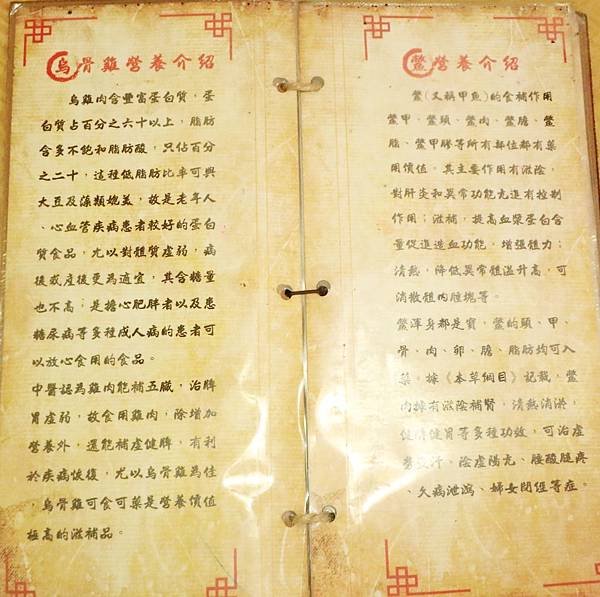 烏骨雞營養介紹
烏雞肉含豐富蛋白質,蛋
白質占百分之六十以上,脂肪
含多不飽和脂肪酸,只佔百分
之二十,這種低脂肪比率可與
大豆及藻類媲美,故是老年人
、心血管疾病患者較好的蛋白
質食品,尤以對體質虛弱,病
後或產後更為適宜,其含糖量
也不高;是擔心肥胖者以及患
糖尿病等多種成人病的患者可
以放心食用的食品。
中醫認為雞肉能補五臟,治脾
胃虛弱,故食用雞肉,除增加
營養外,還能補虛健脾,有利
於疾病恢復,尤以烏骨雞為佳
,烏骨雞可食可藥是營養價值
極高的滋補品。
鱉營養介紹
鱉(又稱甲魚)的食補作用
鱉甲、鱉頭、鱉肉、鱉膽、鱉
脂、鱉甲膠等所有部位都有藥
用價值。其主要作用有滋陰,
對肝炎和異常功能亢進有控制
作用;滋補,提高血漿蛋白含
量促進造血功能,增強體力;
清熱,降低異常體溫升高,可
消散體內腫塊等。
鱉渾身都是寶,鱉的頭、甲、
骨、肉、卵、膽、脂肪均可入
藥,據《本草綱目》記載,鱉
肉據有滋陰補腎,清熱消淤,
健脾健胃等多種功效,可治虛
勞盜汗、陰虛陽亢、腰酸腿疼
、久病泄瀉、婦女閉經等症。